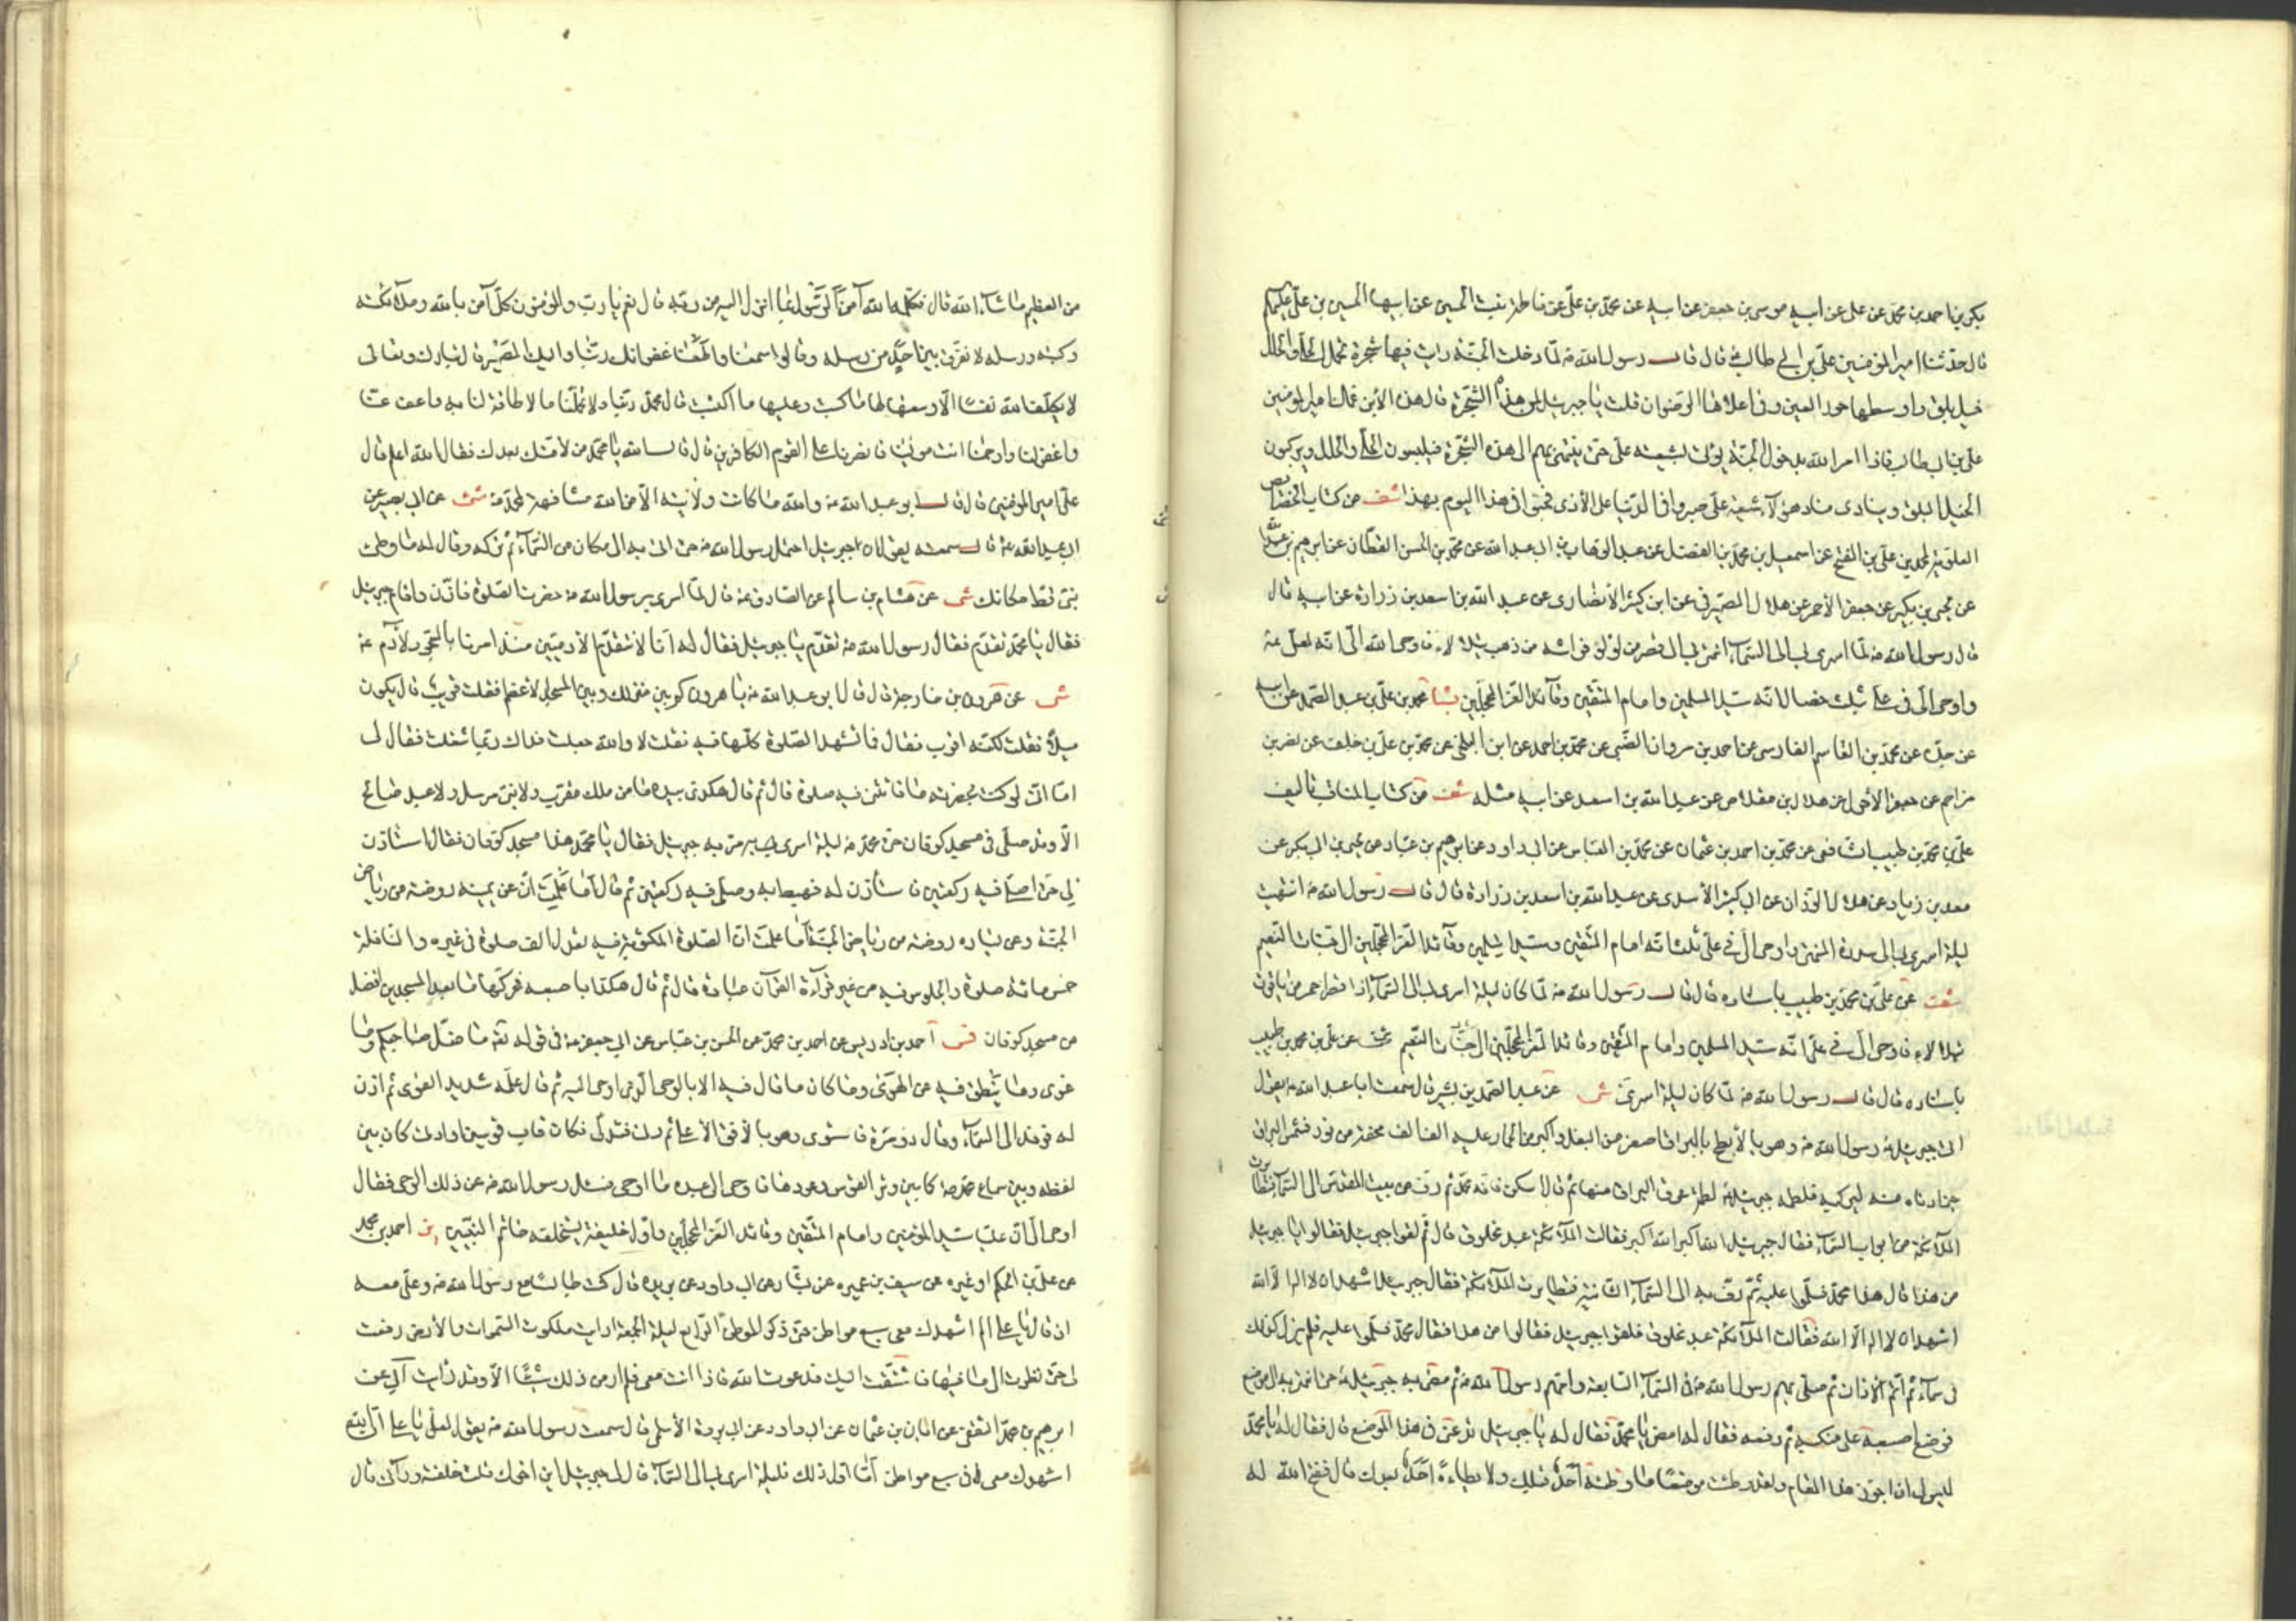 بكر بن احمد بن محمد عن علي عن ابيه موسى بن جعفر عن ابيه عن محمد بن علي عن فاطمة بنت الحسين عن ابيها الحسين بن علي عليهم
قال حدثنا امير المؤمنين علي بن ابي طالب ع قال قال رسول الله ص لما دخلت الجنة رايت فيها شجرة تحمل الحلي والحلل
خيل بلق واوسطها حور العين وفي اعلاها الرضوان قلت يا جبرئيل لمن هذه الشجرة قال هذه لابن عمك امير المؤمنين
علي بن ابي طالب فاذا امر الله بدخول الجنة يؤتى بشيعة علي حتى ينتهى بهم الى هذه الشجرة فيلبسون الحلي والحلل ويركبون
الخيل البلق وينادي مناد هؤلآء شيعة علي صبروا في الدنيا على الاذى فحبوا في هذا اليوم بهذا شف من كتاب الخصايص
العلوية لمحمد بن علي بن الفتح عن اسمعيل بن محمد بن الفضل عن عبد الوهاب بن ابي عبد الله عن محمد بن الحسن القطان عن ابرهيم بن عبد الله
عن يحيى بن بكير عن جعفر الاحمر عن هلال الصيرفي عن ابن كثير الانصاري عن عبد الله بن اسعد بن زرارة عن ابيه قال
قال رسول الله ص لما اسري بي الى السمآء انتهي بي الى قصر من لؤلؤ فراشه من ذهب يتلالاء فاوحى الله الي انه لعلي ع
واوحى الي في علي بثلث خصال انه سيد المسلمين وامام المتقين وقائد الغر المحجلين بشا محمد بن علي بن عبد الصمد عن ابيه
عن جده عن محمد بن القاسم الفارسي عن احمد بن مروان الضبي عن محمد بن احمد عن ابن البلخي عن محمد بن علي بن خلف عن نصر بن
مزاحم عن جعفر الاحمر عن هلال بن مقلاص عن عبد الله بن اسعد عن ابيه مثله شف من كتاب المناقب تاليف
علي بن محمد بن طبيب الشافعي عن محمد بن احمد بن عثمان عن محمد بن العباس عن ابي داود عن ابرهيم بن عباد عن يحيى بن ابي بكر عن
معد بن زياد عن هلال الوزان عن ابي كثير الاسدي عن عبد الله بن اسعد بن زرارة قال قال رسول الله ص انتهيت
ليلة اسري بي الى سدرة المنتهى واوحي الي في علي بثلث انه امام المتقين وسيد المسلمين وقائد الغر المحجلين الى جنات النعيم
شف عن علي بن محمد بن طبيب باسناده قال قال رسول الله ص لما كان ليلة اسري بي الى السمآء اذا قصر احمر من ياقوت
يتلالاء فاوحى الي في علي انه سيد المسلمين وامام المتقين وقائد الغر المحجلين الى جنات النعيم شف عن علي بن محمد بن طبيب
باسناده قال قال رسول الله ص لما كان ليلة اسري شى عن عبد الصمد بن بشير قال سمعت ابا عبد الله ع يقول
اتى جبرئيل ع رسول الله ص وهو بالابطح بالبراق اصغر من البغل واكبر من الحمار عليه الف الف محفة من نور فشمس البراق
حين ادناه منه ليركبه فلطمه جبرئيل ع لطمة عرق البراق منها ثم قال اسكن فانه محمد ثم زف من بيت المقدس الى السمآء فتطايرت
الملآئكة من ابواب السمآء فقال جبرئيل الله اكبر الله اكبر فقالت الملآئكة عبد مخلوق قال ثم لقوا جبرئيل فقالوا يا جبرئيل
من هذا قال هذا محمد فسلموا عليه ثم زف به الى السمآء الثانية فتطايرت الملآئكة فقال جبرئيل اشهد ان لا اله الا الله
اشهد ان لا اله الا الله فقالت الملآئكة عبد مخلوق فلقوا جبرئيل فقالوا من هذا فقال محمد فسلموا عليه فلم يزل كذلك
في سمآء ثم اتم الاذان ثم صلى بهم رسول الله ص في السمآء السابعة وامهم رسول الله ص ثم مضى به جبرئيل ع حتى انتهى به الى موضع
فوضع اصبعه على منكبه ثم رفعه فقال له امض يا محمد فقال له يا جبرئيل تدعني في هذا الموضع قال فقال له يا محمد
ليس لي ان اجوز هذا المقام ولقد وطئت موضعا ما وطئه احد قبلك ولا يطاءه احد بعدك قال ففتح الله له
من العظيم ماشآء الله قال فكلمه الله آمن الرسول بما انزل اليه من ربه قال نعم يا رب والمؤمنون كل آمن بالله وملآئكته
وكتبه ورسله لا نفرق بين احد من رسله وقالوا سمعنا واطعنا غفرانك ربنا واليك المصير قال تبارك وتعالى
لا يكلف الله نفسا الا وسعها لها ما كسبت وعليها ما اكتسبت قال محمد ربنا ولا تحملنا ما لا طاقة لنا به واعف عنا
واغفر لنا وارحمنا انت مولينا فانصرنا على القوم الكافرين قال قال الله يا محمد من لامتك بعدك فقال الله اعلم قال
علي امير المؤمنين قال قال ابو عبد الله ع والله ما كانت ولايته الا من الله مشافهة لمحمد ص شى عن ابي بصير عن
ابي عبد الله ع قال سمعته يقول ان جبرئيل احتمل رسول الله ص حتى انتهى به الى مكان من السمآء ثم تركه وقال له ما وطئ
نبي قط مكانك شى عن هشام بن سالم عن الصادق ع قال لما اسري برسول الله ص حضرت الصلوة فاذن واقام جبرئيل
فقال يا محمد تقدم فقال رسول الله ص تقدم يا جبرئيل فقال له انا لا نتقدم الادميين منذ امرنا بالسجود لآدم ع
شى عن هرون بن خارجة قال قال ابو عبد الله ع يا هرون كم بين منزلك وبين المسجد الاعظم فقلت قريب قال يكون
ميلا فقلت لكنه اقرب فقال فاتشهد الصلوة كلها فيه فقلت لا والله جعلت فداك ربما شغلت فقال لي
اما اني لو كنت بحضرته ما فاتتني فيه صلوة قال ثم قال هكذى بيده ما من ملك مقرب ولا نبي مرسل ولا عبد صالح
الا وقد صلى في مسجد كوفان حتى محمد ص ليلة اسري به مر به جبرئيل فقال يا محمد هذا مسجد كوفان فقال استاذن
لي حتى اصلي فيه ركعتين فاستأذن له فهبط به وصلى فيه ركعتين ثم قال اما علمت ان عن يمينه روضة من رياض
الجنة وعن يساره روضة من رياض الجنة اما علمت ان الصلوة المكتوبة فيه تعدل الف صلوة في غيره والنافلة
خمسمائة صلوة والجلوس فيه من غير قرآءة القرآن عبادة قال ثم قال هكذا باصبعه فحركها ما بعد المسجدين افضل
من مسجد كوفان فس احمد بن ادريس عن احمد بن محمد عن الحسين بن عباس عن ابي جعفر ع في قوله تعـ ما ضل صاحبكم وما
غوى وما ينطق فيه عن الهوى وما كان ما قال فيه الا بالوحي الذي اوحي اليه ثم قال علمه شديد القوى ثم اذن
له فوفد الى السمآء وقال ذو مرة فاستوى وهو بالافق الاعلى ثم دنى فتدلى فكان قاب قوسين او ادنى كان بين
لفظه وبين سماع محمد ص كما بين وتر القوس وعودها فاوحى الى عبده ما اوحى فسئل رسول الله ص عن ذلك الوحي فقال
اوحى الي ان عليا سيد المؤمنين وامام المتقين وقائد الغر المحجلين واول خليفة يستخلفه خاتم النبيين ير احمد بن محمد
عن علي بن الحكم او غيره عن سيف بن عميره عن بشار عن ابي داود عن بريده قال كنت جالسا مع رسول الله ص وعلي معه
اذ قال يا علي الم اشهدك معي سبع مواطن حتى ذكر الموطن الرابع ليلة الجمعة اريت ملكوت السموات والارض رفعت
لي حتى نظرت الى ما فيها فاشتقت اليك فدعوت الله فاذا انت معي فلم ار من ذلك شيئا الا وقد رايت ير عن
ابرهيم بن محمد الثقفي عن ابان بن عثمان عن ابي داود عن ابي بردة الاسلمي قال سمعت رسول الله ص يقول لعلي يا علي ان الله
اشهدك معي في سبع مواطن اما اول ذلك فليلة اسري بي الى السمآء قال لي جبرئيل اين اخوك قلت خلفته ورآئي قال